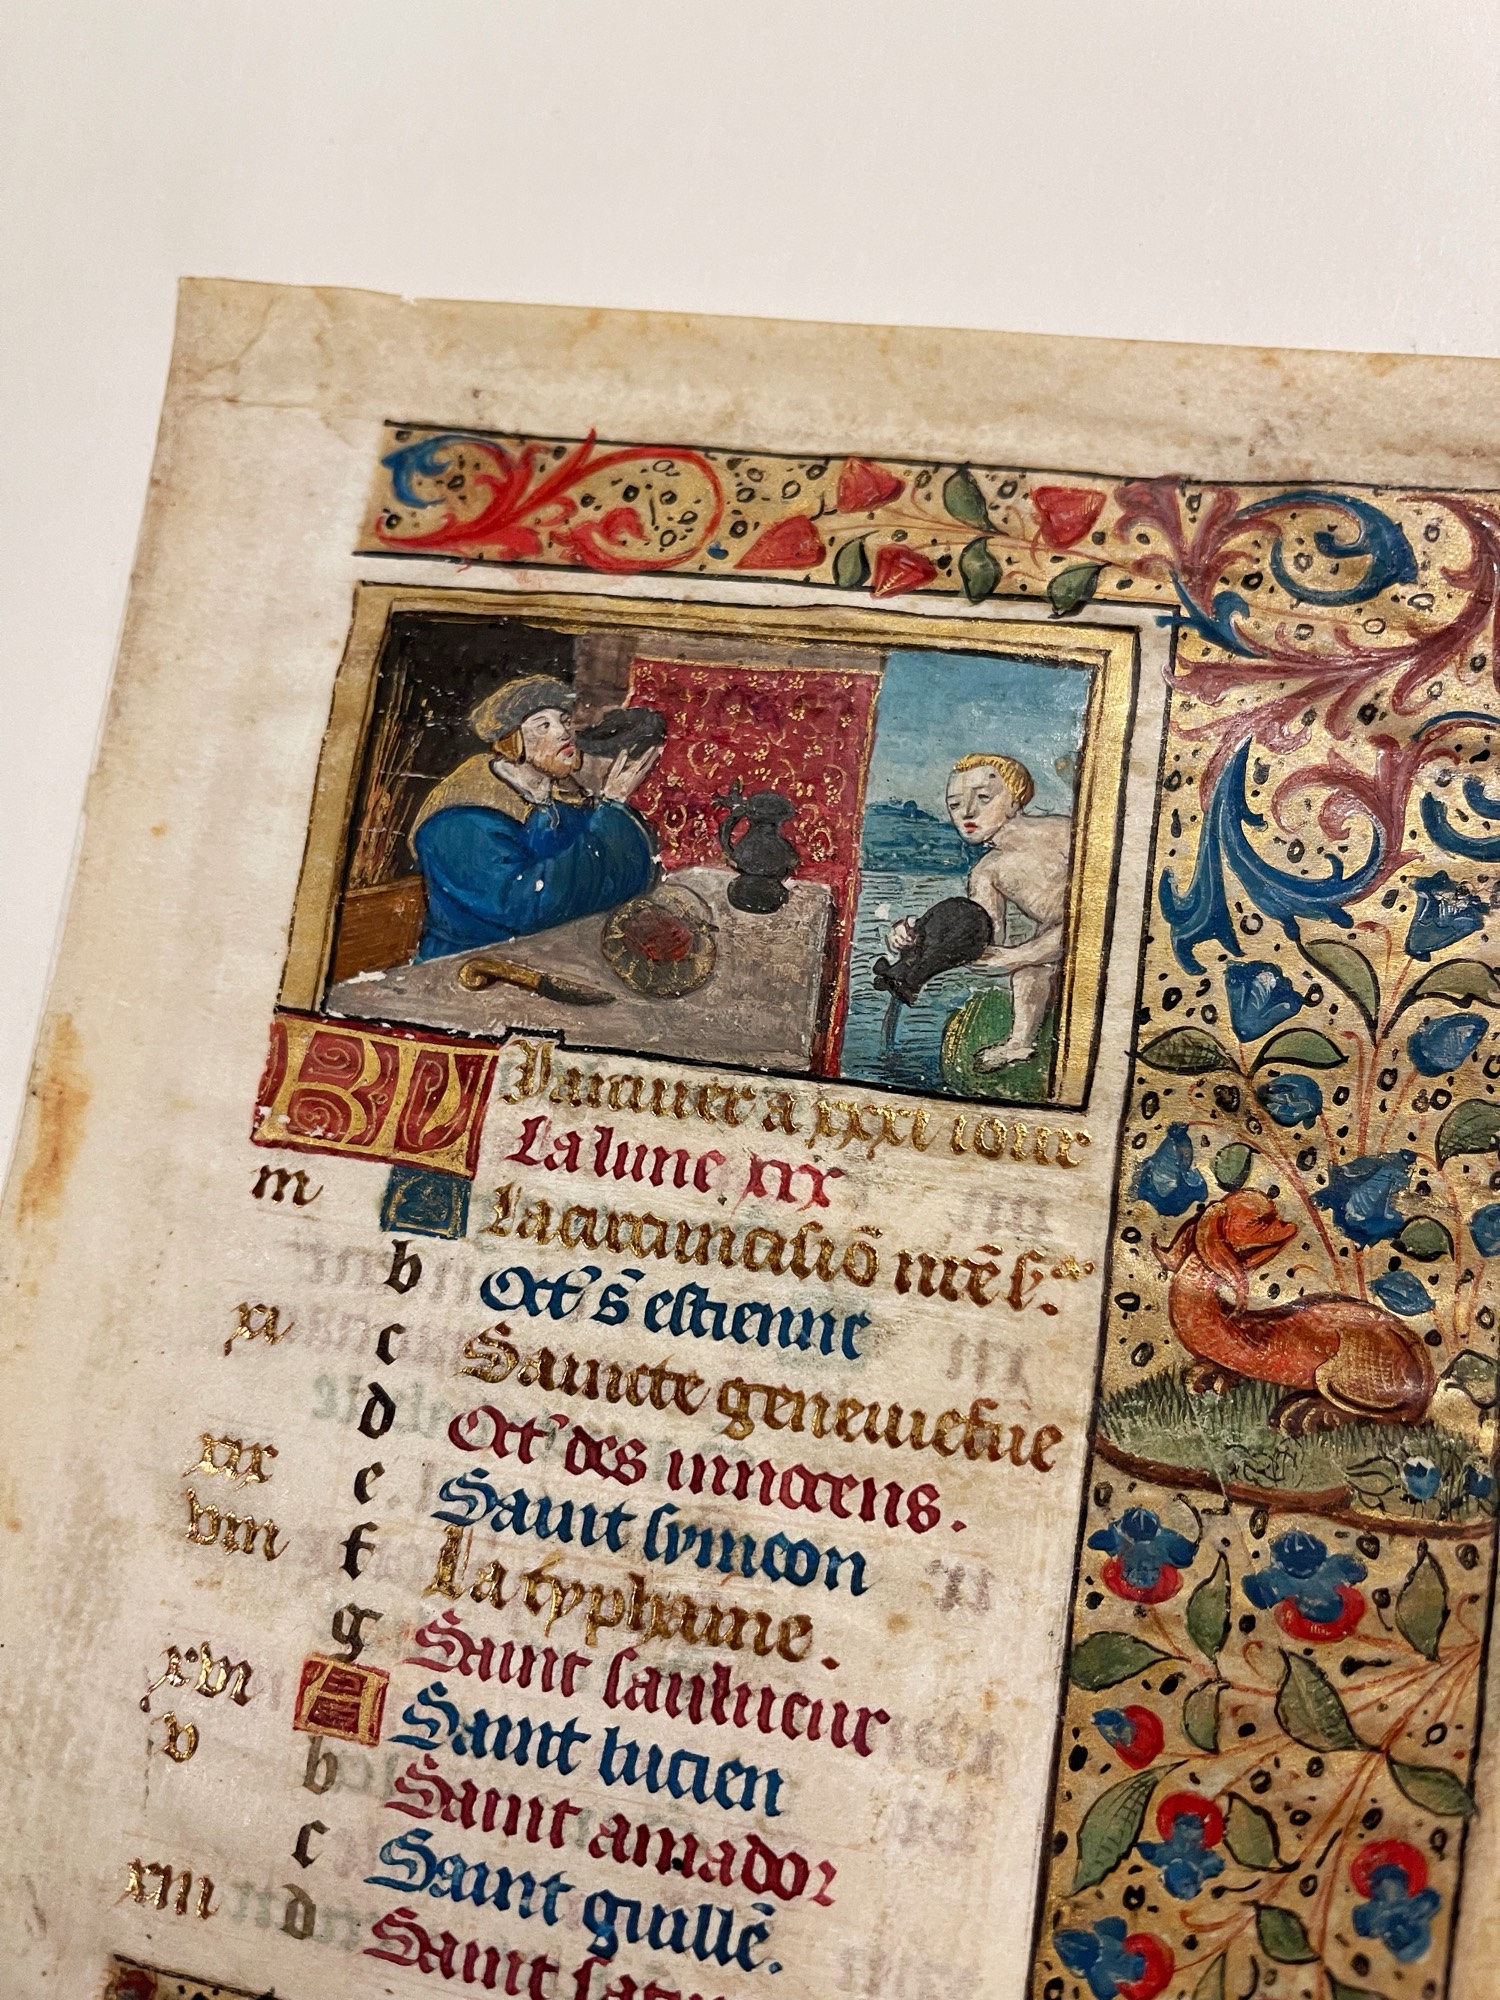 KL Januier a xxxi iour
La lune xxx
iii A La circuncisiõ nrẽ sʳ.
b Oct' s̃ estienne
xi c Saincte geneuiefue
d Oct' des innocens.
xix e Saint symeon
viii f La typhaine.
g Saint
xvi A Saint lucien
v b Saint amador
c Saint guillẽ.
xiii d Saint